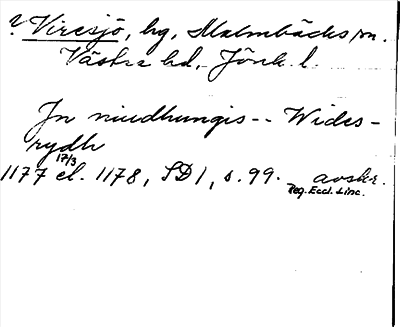 ? Viresjö, hg, Malmbäcks sn.
Västra hd, Jönk. l.
In niudhungis -- Wides-
rydh
1177 17/3 el. 1178, SD 1, s. 99. avskr.
Reg. Eccl. Linc.